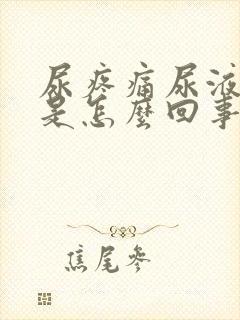 尿疼痛尿液
是怎麼回事
焦尾參